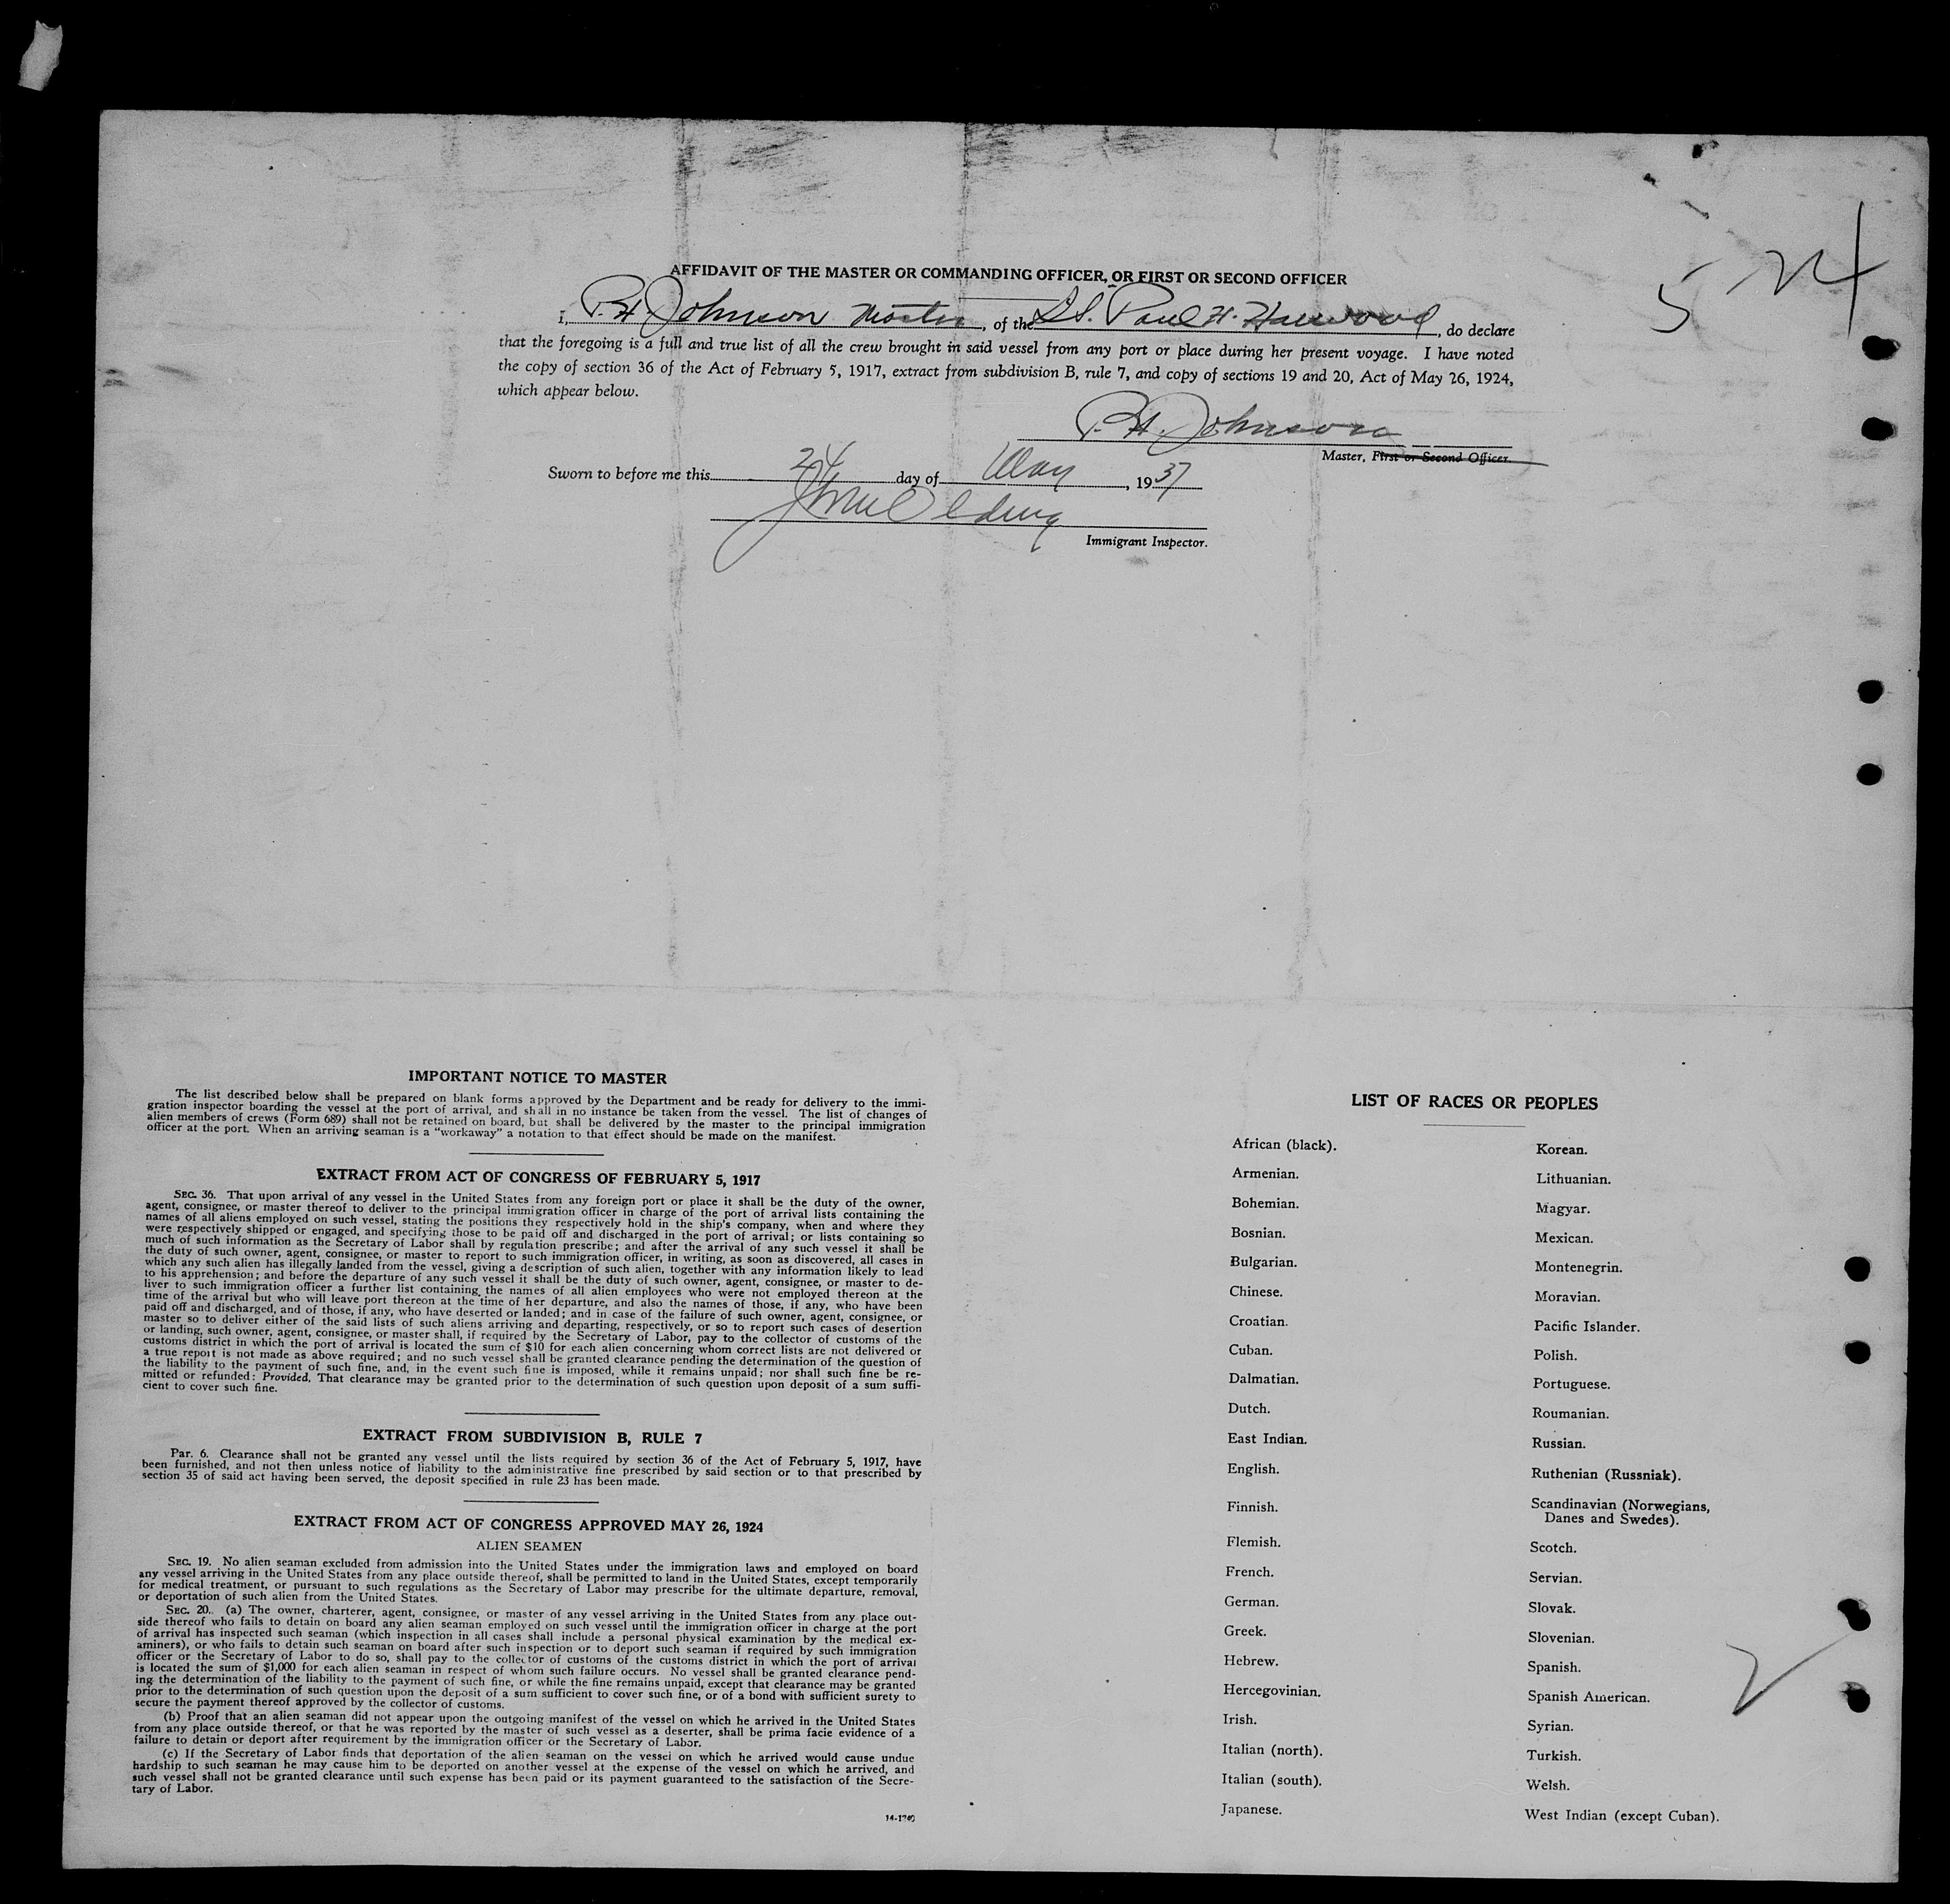 5-24
AFFIDAVIT OF THE MASTER OR COMMANDING OFFICER, OR FIRST OR SECOND OFFICER
I, P. H. Johnson Master, of the SS. Paul H. Harwood, do declare
that the foregoing is a full and true list of all the crew brought in said vessel from any port or place during her present voyage. I have noted
the copy of section 36 of the Act of February 5, 1917, extract from subdivision B, rule 7, and copy of sections 19 and 20, Act of May 26, 1924,
which appear below.
P. H. Johnson
Master, First or Second Officer.
Sworn to before me this 24 day of May, 1937
Immigrant Inspector.
IMPORTANT NOTICE TO MASTER
The list described below shall be prepared on blank forms approved by the Department and be ready for delivery to the immi-
gration inspector boarding the vessel at the port of arrival, and shall in no instance be taken from the vessel. The list of changes of
alien members of crews (Form 689) shall not be retained on board, but shall be delivered by the master to the principal immigration
officer at the port. When an arriving seaman is a "workaway" a notation to that effect should be made on the manifest.
EXTRACT FROM ACT OF CONGRESS OF FEBRUARY 5, 1917
SEC. 36. That upon arrival of any vessel in the United States from any foreign port or place it shall be the duty of the owner,
agent, consignee, or master thereof to deliver to the principal immigration officer in charge of the port of arrival lists containing the
names of all aliens employed on such vessel, stating the positions they respectively hold in the ship's company, when and where they
were respectively shipped or engaged, and specifying those to be paid off and discharged in the port of arrival; or lists containing so
much of such information as the Secretary of Labor shall by regulation prescribe; and after the arrival of any such vessel it shall be
the duty of such owner, agent, consignee, or master to report to such immigration officer, in writing, as soon as discovered, all cases in
which any such alien has illegally landed from the vessel, giving a description of such alien, together with any information likely to lead
to his apprehension; and before the departure of any such vessel it shall be the duty of such owner, agent, consignee, or master to de-
liver to such immigration officer a further list containing the names of all alien employees who were not employed thereon at the
time of the arrival but who will leave port thereon at the time of her departure, and also the names of those, if any, who have been
paid off and discharged, and of those, if any, who have deserted or landed; and in case of the failure of such owner, agent, consignee, or
master so to deliver either of the said lists of such aliens arriving and departing, respectively, or so to report such cases of desertion
or landing, such owner, agent, consignee, or master shall, if required by the Secretary of Labor, pay to the collector of customs of the
customs district in which the port of arrival is located the sum of $10 for each alien concerning whom correct lists are not delivered or
a true report is not made as above required; and no such vessel shall be granted clearance pending the determination of the question of
the liability to the payment of such fine, and, in the event such fine is imposed, while it remains unpaid; nor shall such fine be re-
mitted or refunded: Provided, That clearance may be granted prior to the determination of such question upon deposit of a sum suffi-
cient to cover such fine.
EXTRACT FROM SUBDIVISION B, RULE 7
Par. 6. Clearance shall not be granted any vessel until the lists required by section 36 of the Act of February 5, 1917, have
been furnished, and not then unless notice of liability to the administrative fine prescribed by said section or to that prescribed by
section 35 of said act having been served, the deposit specified in rule 23 has been made.
EXTRACT FROM ACT OF CONGRESS APPROVED MAY 26, 1924
ALIEN SEAMEN
SEC. 19. No alien seaman excluded from admission into the United States under the immigration laws and employed on board
any vessel arriving in the United States from any place outside thereof, shall be permitted to land in the United States, except temporarily
for medical treatment, or pursuant to such regulations as the Secretary of Labor may prescribe for the ultimate departure, removal,
or deportation of such alien from the United States.
SEC. 20. (a) The owner, charterer, agent, consignee, or master of any vessel arriving in the United States from any place out-
side thereof who fails to detain on board any alien seaman employed on such vessel until the immigration officer in charge at the port
of arrival has inspected such seaman (which inspection in all cases shall include a personal physical examination by the medical ex-
aminers), or who fails to detain such seaman on board after such inspection or to deport such seaman if required by such immigration
officer or the Secretary of Labor to do so, shall pay to the collector of customs of the customs district in which the port of arrival
is located the sum of $1,000 for each alien seaman in respect of whom such failure occurs. No vessel shall be granted clearance pend-
ing the determination of the liability to the payment of such fine, or while the fine remains unpaid, except that clearance may be granted
prior to the determination of such question upon the deposit of a sum sufficient to cover such fine, or of a bond with sufficient surety to
secure the payment thereof approved by the collector of customs.
(b) Proof that an alien seaman did not appear upon the outgoing manifest of the vessel on which he arrived in the United States
from any place outside thereof, or that he was reported by the master of such vessel as a deserter, shall be prima facie evidence of a
failure to detain or deport after requirement by the immigration officer or the Secretary of Labor.
(c) If the Secretary of Labor finds that deportation of the alien seaman on the vessel on which he arrived would cause undue
hardship to such seaman he may cause him to be deported on another vessel at the expense of the vessel on which he arrived, and
such vessel shall not be granted clearance until such expense has been paid or its payment guaranteed to the satisfaction of the Secre-
tary of Labor.
LIST OF RACES OR PEOPLES
African (black).
Armenian.
Bohemian.
Bosnian.
Bulgarian.
Chinese.
Croatian.
Cuban.
Dalmatian.
Dutch.
East Indian.
English.
Finnish.
Flemish.
French.
German.
Greek.
Hebrew.
Hercegovinian.
Irish.
Italian (north).
Italian (south).
Japanese.
Korean.
Lithuanian.
Magyar.
Mexican.
Montenegrin.
Moravian.
Pacific Islander.
Polish.
Portuguese.
Roumanian.
Russian.
Ruthenian (Russniak).
Scandinavian (Norwegians,
Danes and Swedes).
Scotch.
Servian.
Slovak.
Slovenian.
Spanish.
Spanish American.
Syrian.
Turkish.
Welsh.
West Indian (except Cuban).